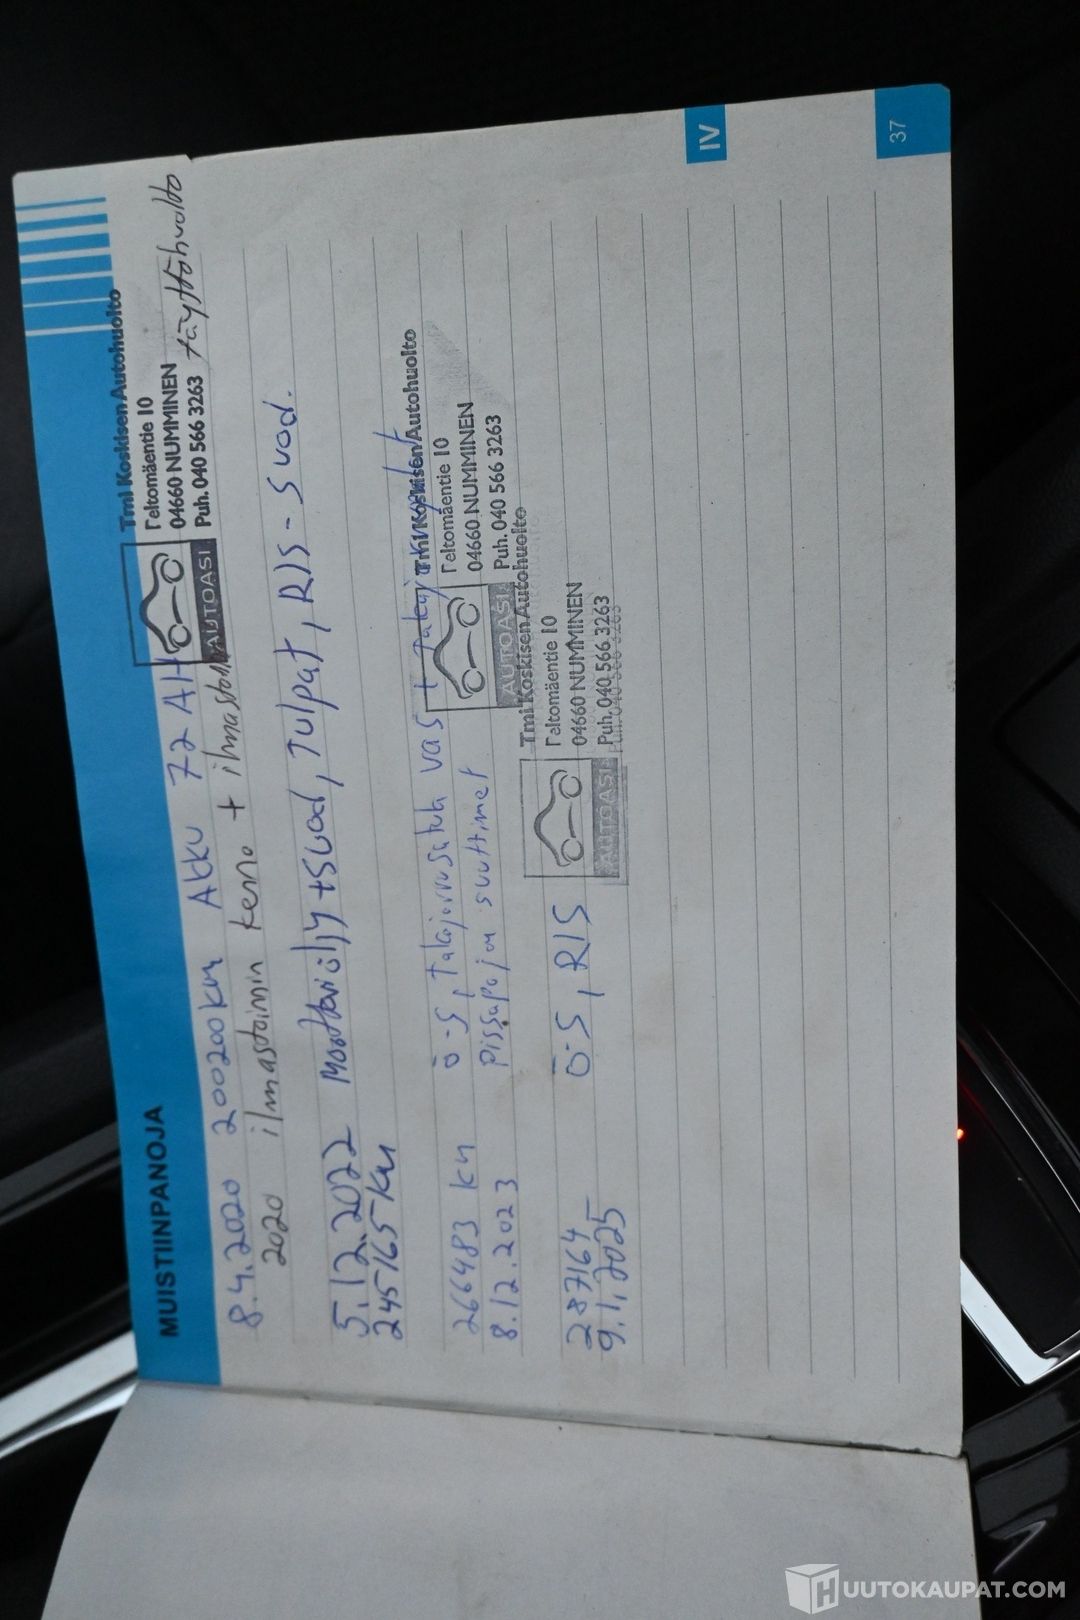 MUISTIINPANOJA
8.4.2020 200200km Akku 72 AH
Tmi Koskisen Autohuolto
Peltomäentie 10
04660 NUMMINEN
Puh. 040 566 3263
AUTOASI
täyttöhuolto
2020 ilmastoinin kenno + ilmastoin
5.12.2022 Moottoriöljy+suod, Tulpat, RIS-suod.
245165km
266483 km Ö-S, Takajarrusatula vas +
8.12.2023 pissapojan suuttimet
Tmi Koskisen Autohuolto
Peltomäentie 10
04660 NUMMINEN
Puh. 040 566 3263
AUTOASI
287164 Ö-S, RIS
9.1.2025
Tmi Koskisen Autohuolto
Peltomäentie 10
04660 NUMMINEN
Puh. 040 566 3263
AUTOASI
IV
37
HUUTOKAUPAT.COM